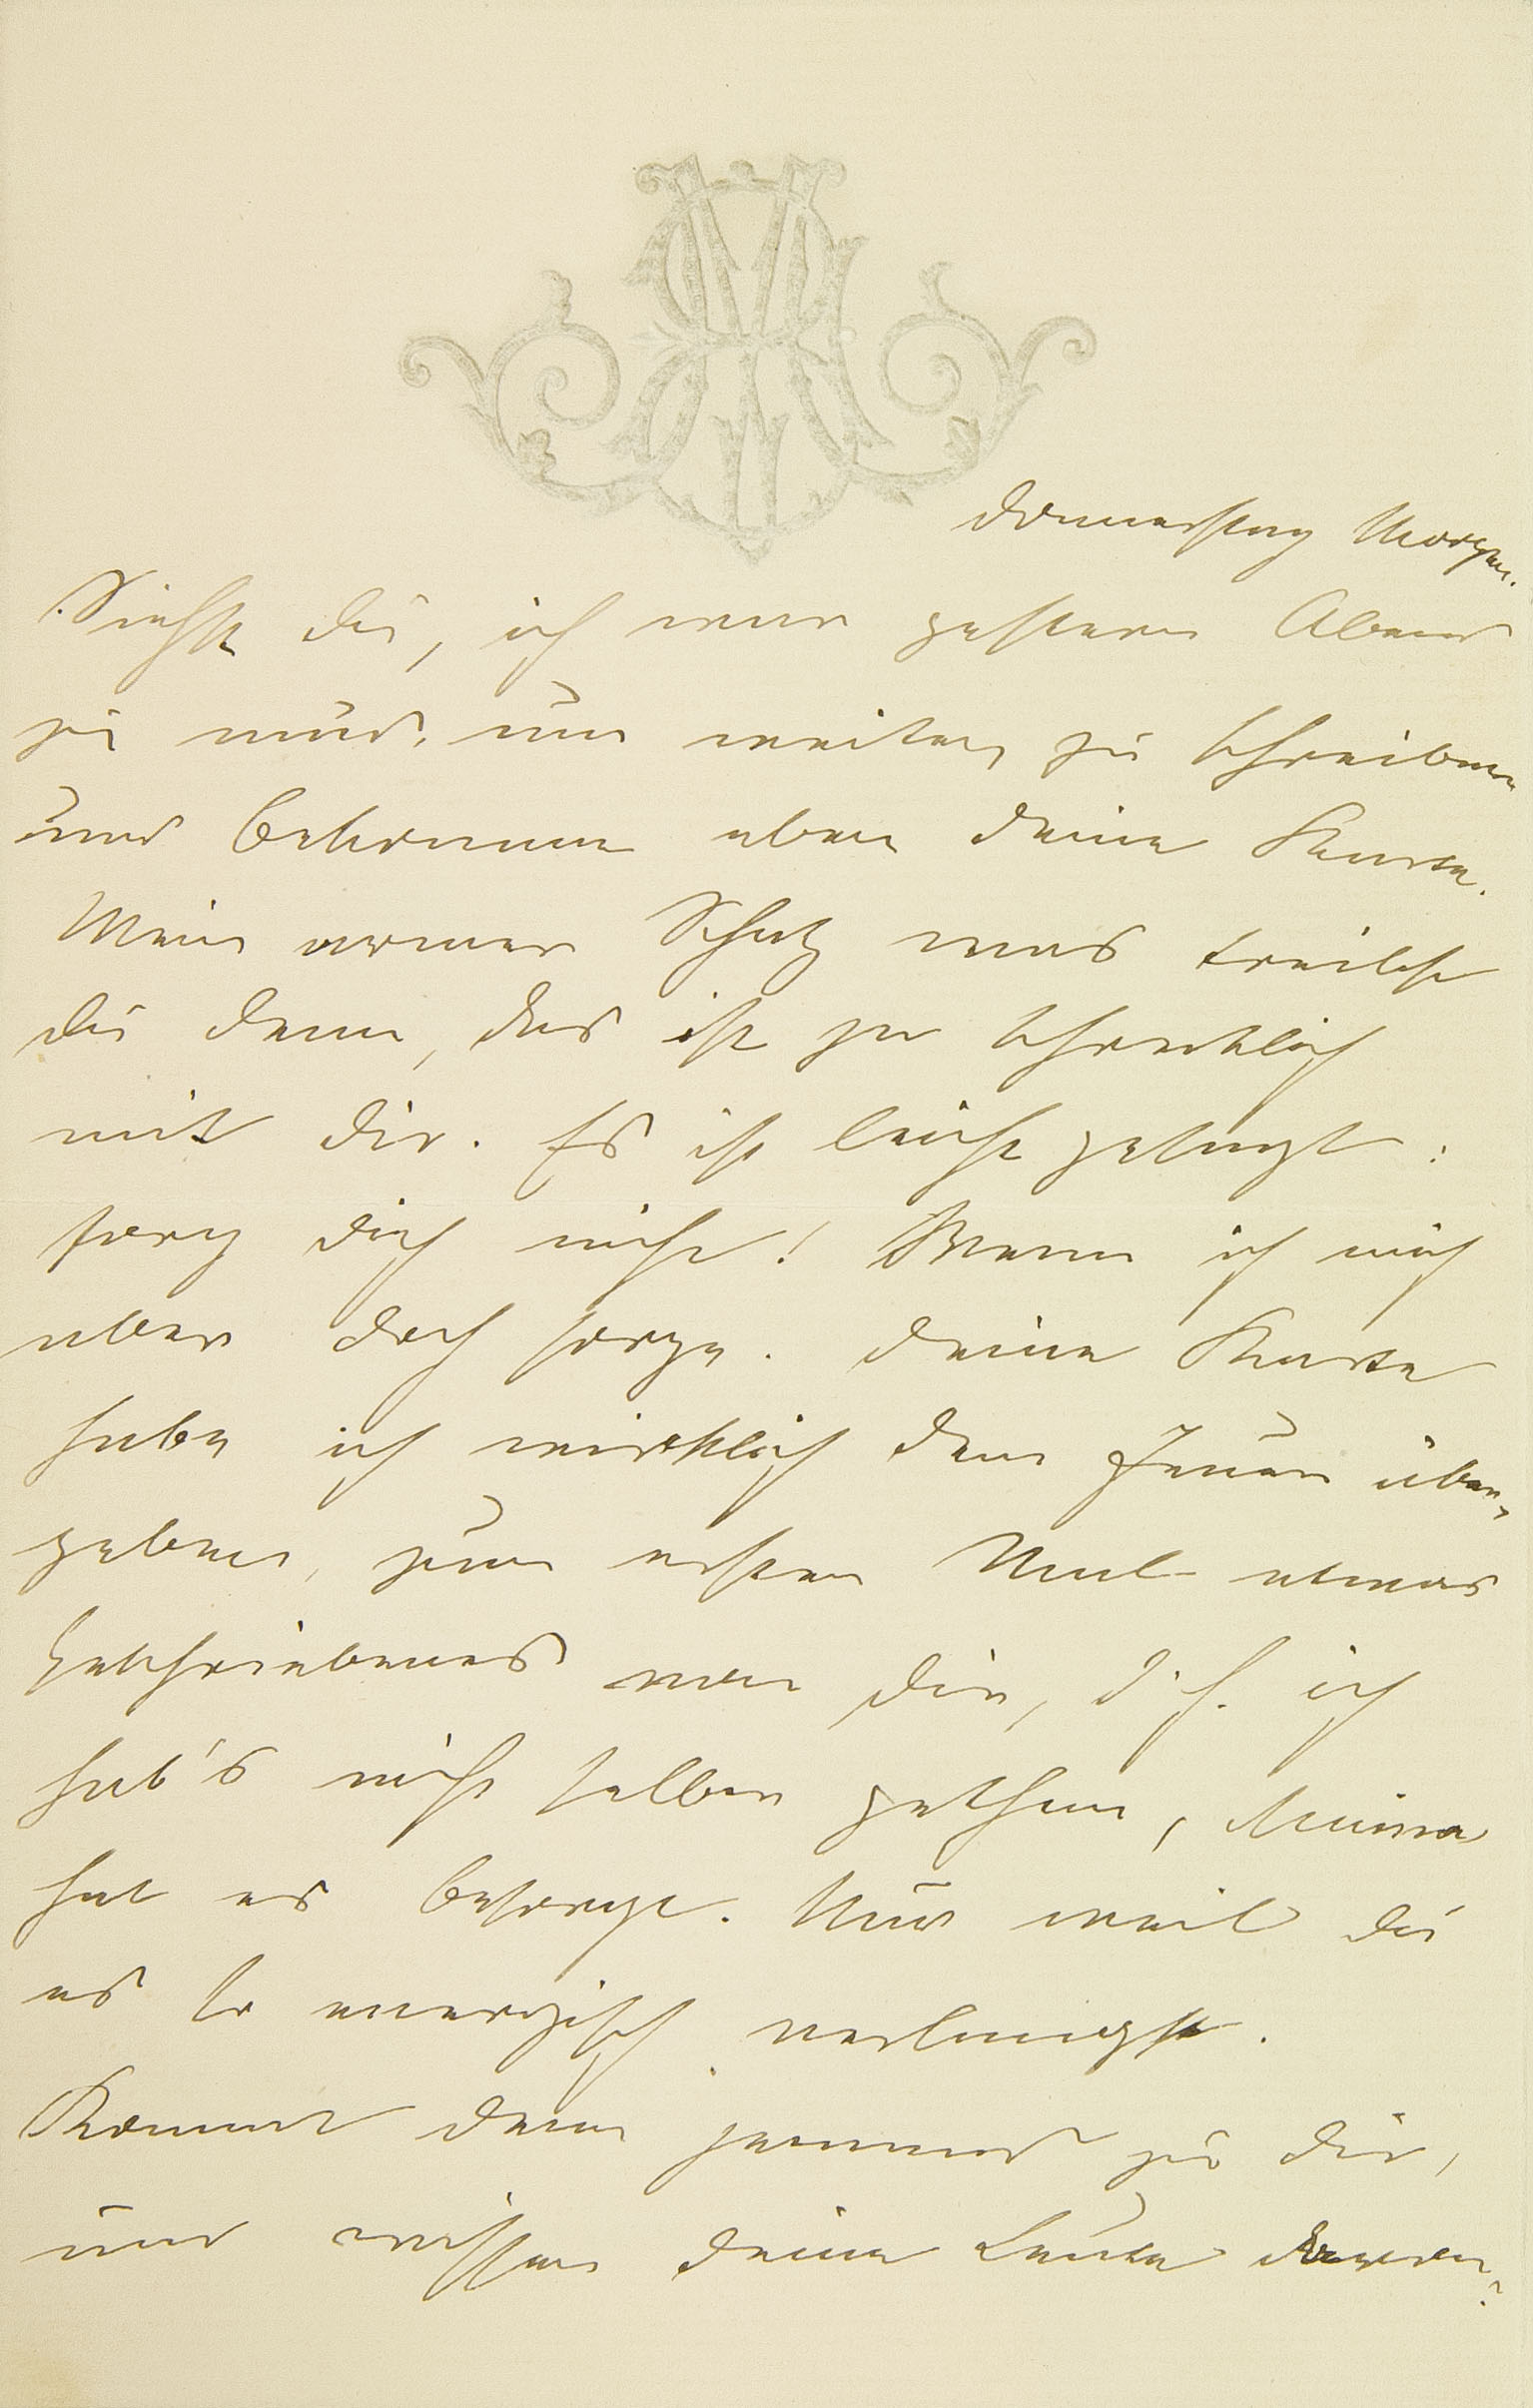 Donnerstag Morgen.
Siehst du, ich war gestern Abend
zu müd, um weiter zu schreiben
und bekomme eben deine Karte.
Mein armer Schatz was treibst
du denn, das ist ja schrecklich
mit dir. Es ist leicht gesagt:
sorg dich nicht! Wenn ich mich
aber doch sorge. Deine Karte
habe ich wirklich dem Feuer über-
geben, zum ersten Mal etwas
Geschriebenes von dir, d. h. ich
hab's nicht selber gethan, Minna
hat es besorgt. Nur weil du
es so energisch verlangst.
Kommt denn jemand zu dir,
und wissen deine Leute davon?